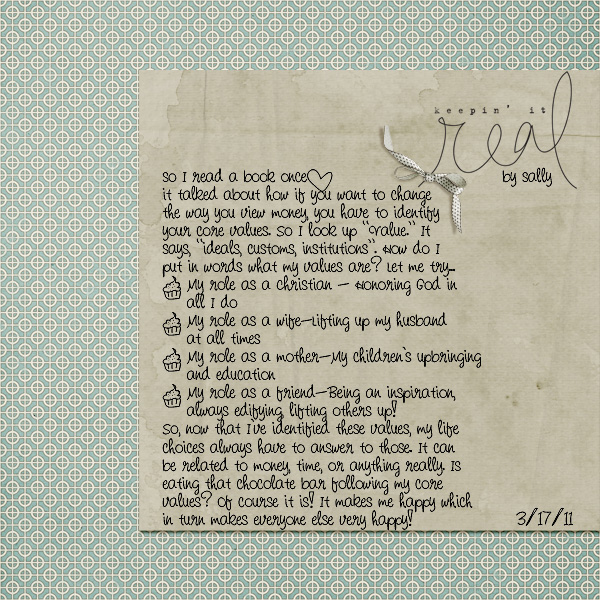 keepin' it
real
by sally
so I read a book once
it talked about how if you want to change
the way you view money, you have to identify
your core values. So I look up "value." It
says, "ideals, customs, institutions". How do I
put in words what my values are? Let me try...
My role as a christian – Honoring God in
all I do
My role as a wife–Lifting up my husband
at all times
My role as a mother–My children's upbringing
and education
My role as a friend–Being an inspiration,
always edifying, lifting others up!
So, now that I've identified these values, my life
choices always have to answer to those. It can
be related to money, time, or anything really. Is
eating that chocolate bar following my core
values? Of course it is! It makes me happy which
in turn makes everyone else very happy!
3/17/11